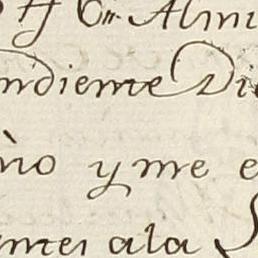 Almi
ndiente Di
ño y me e
ntes a la